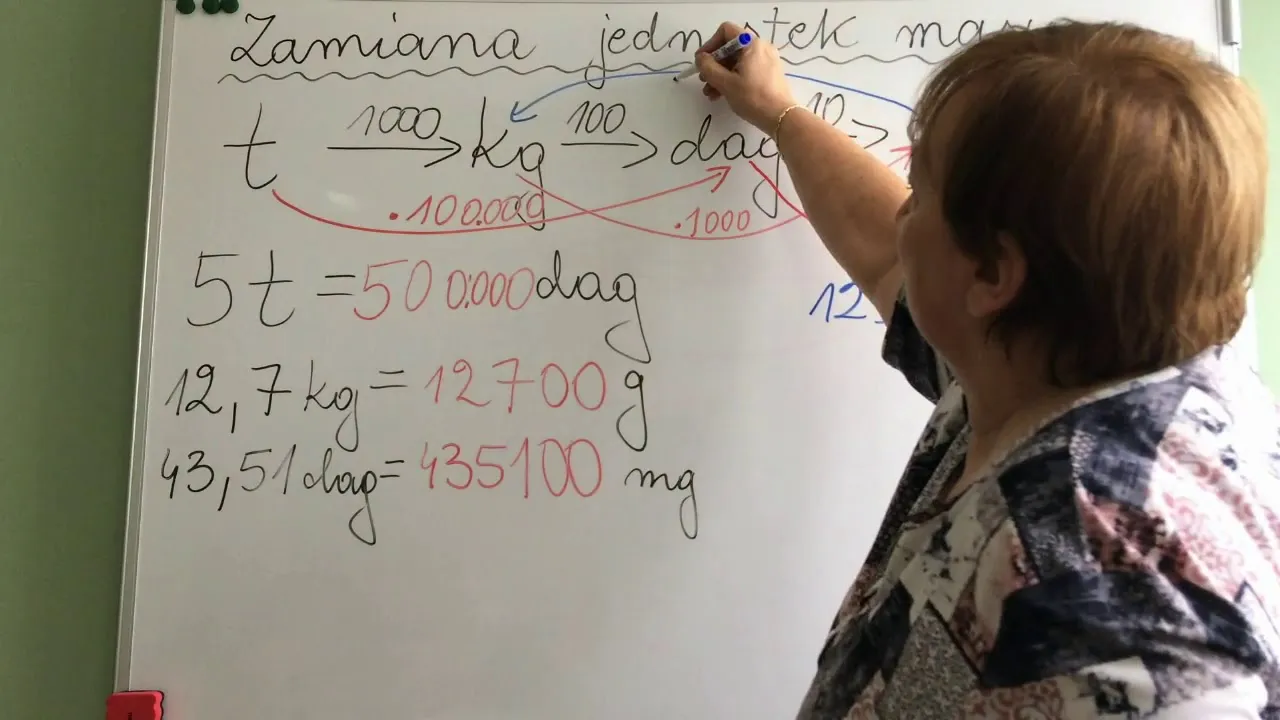 Zamiana jednostek
t 1000 kg 100 dag 10
.100.000 .1000
5t = 500.000 dag
12
12,7 kg = 12700 g
43,51 dag = 435100 mg